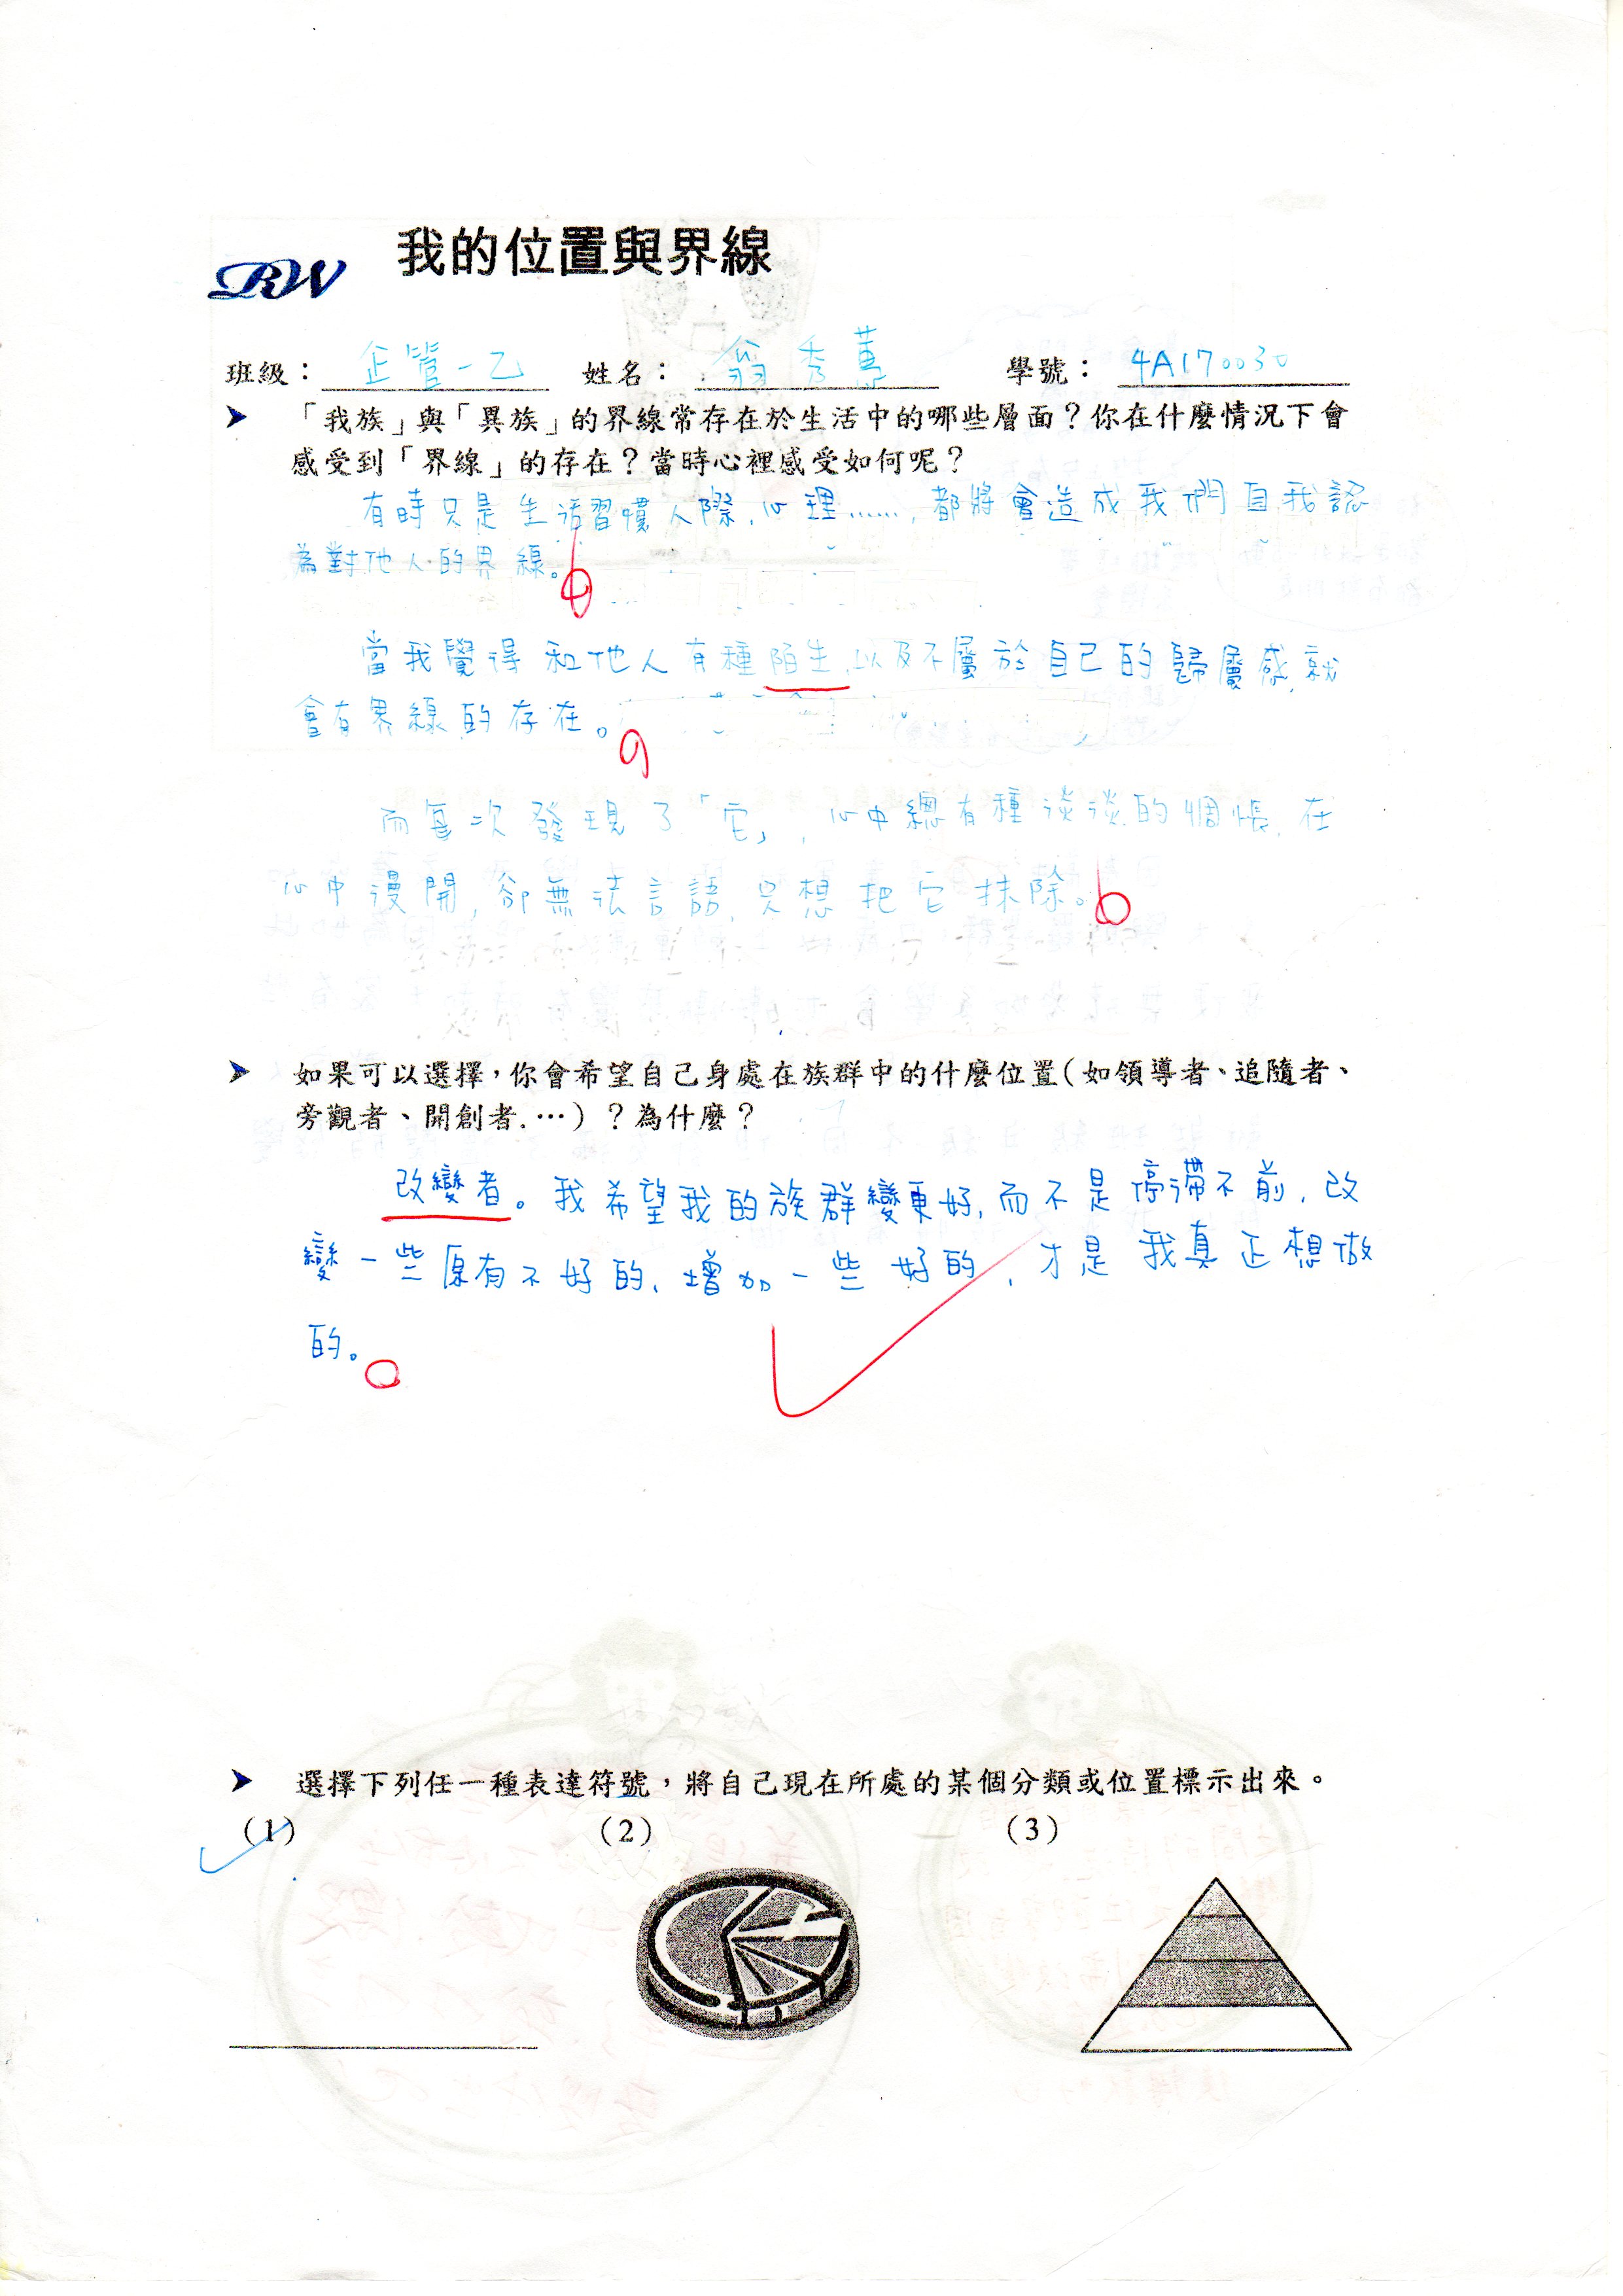 我的位置與界線
RW
班級：企管一乙 姓名：翁秀 學號：4A170030
「我族」與「異族」的界線常存在於生活中的哪些層面？你在什麼情況下會
感受到「界線」的存在？當時心裡感受如何呢？
有時只是生活習慣、人際、心理……，都將會造成我們自我認
為對他人的界線。
當我覺得和他人有種陌生、以及不屬於自己的歸屬感，就
會有界線的存在。
而每次發現了「它」，心中總有種淡淡的惆悵，在
心中漫開，卻無法言語，只想把它抹除。
如果可以選擇，你會希望自己身處在族群中的什麼位置（如領導者、追隨者、
旁觀者、開創者.…）？為什麼？
改變者。我希望我的族群變更好，而不是停滯不前，改
變一些原有不好的、增加一些好的，才是我真正想做
的。
選擇下列任一種表達符號，將自己現在所處的某個分類或位置標示出來。
(1) (2) (3)